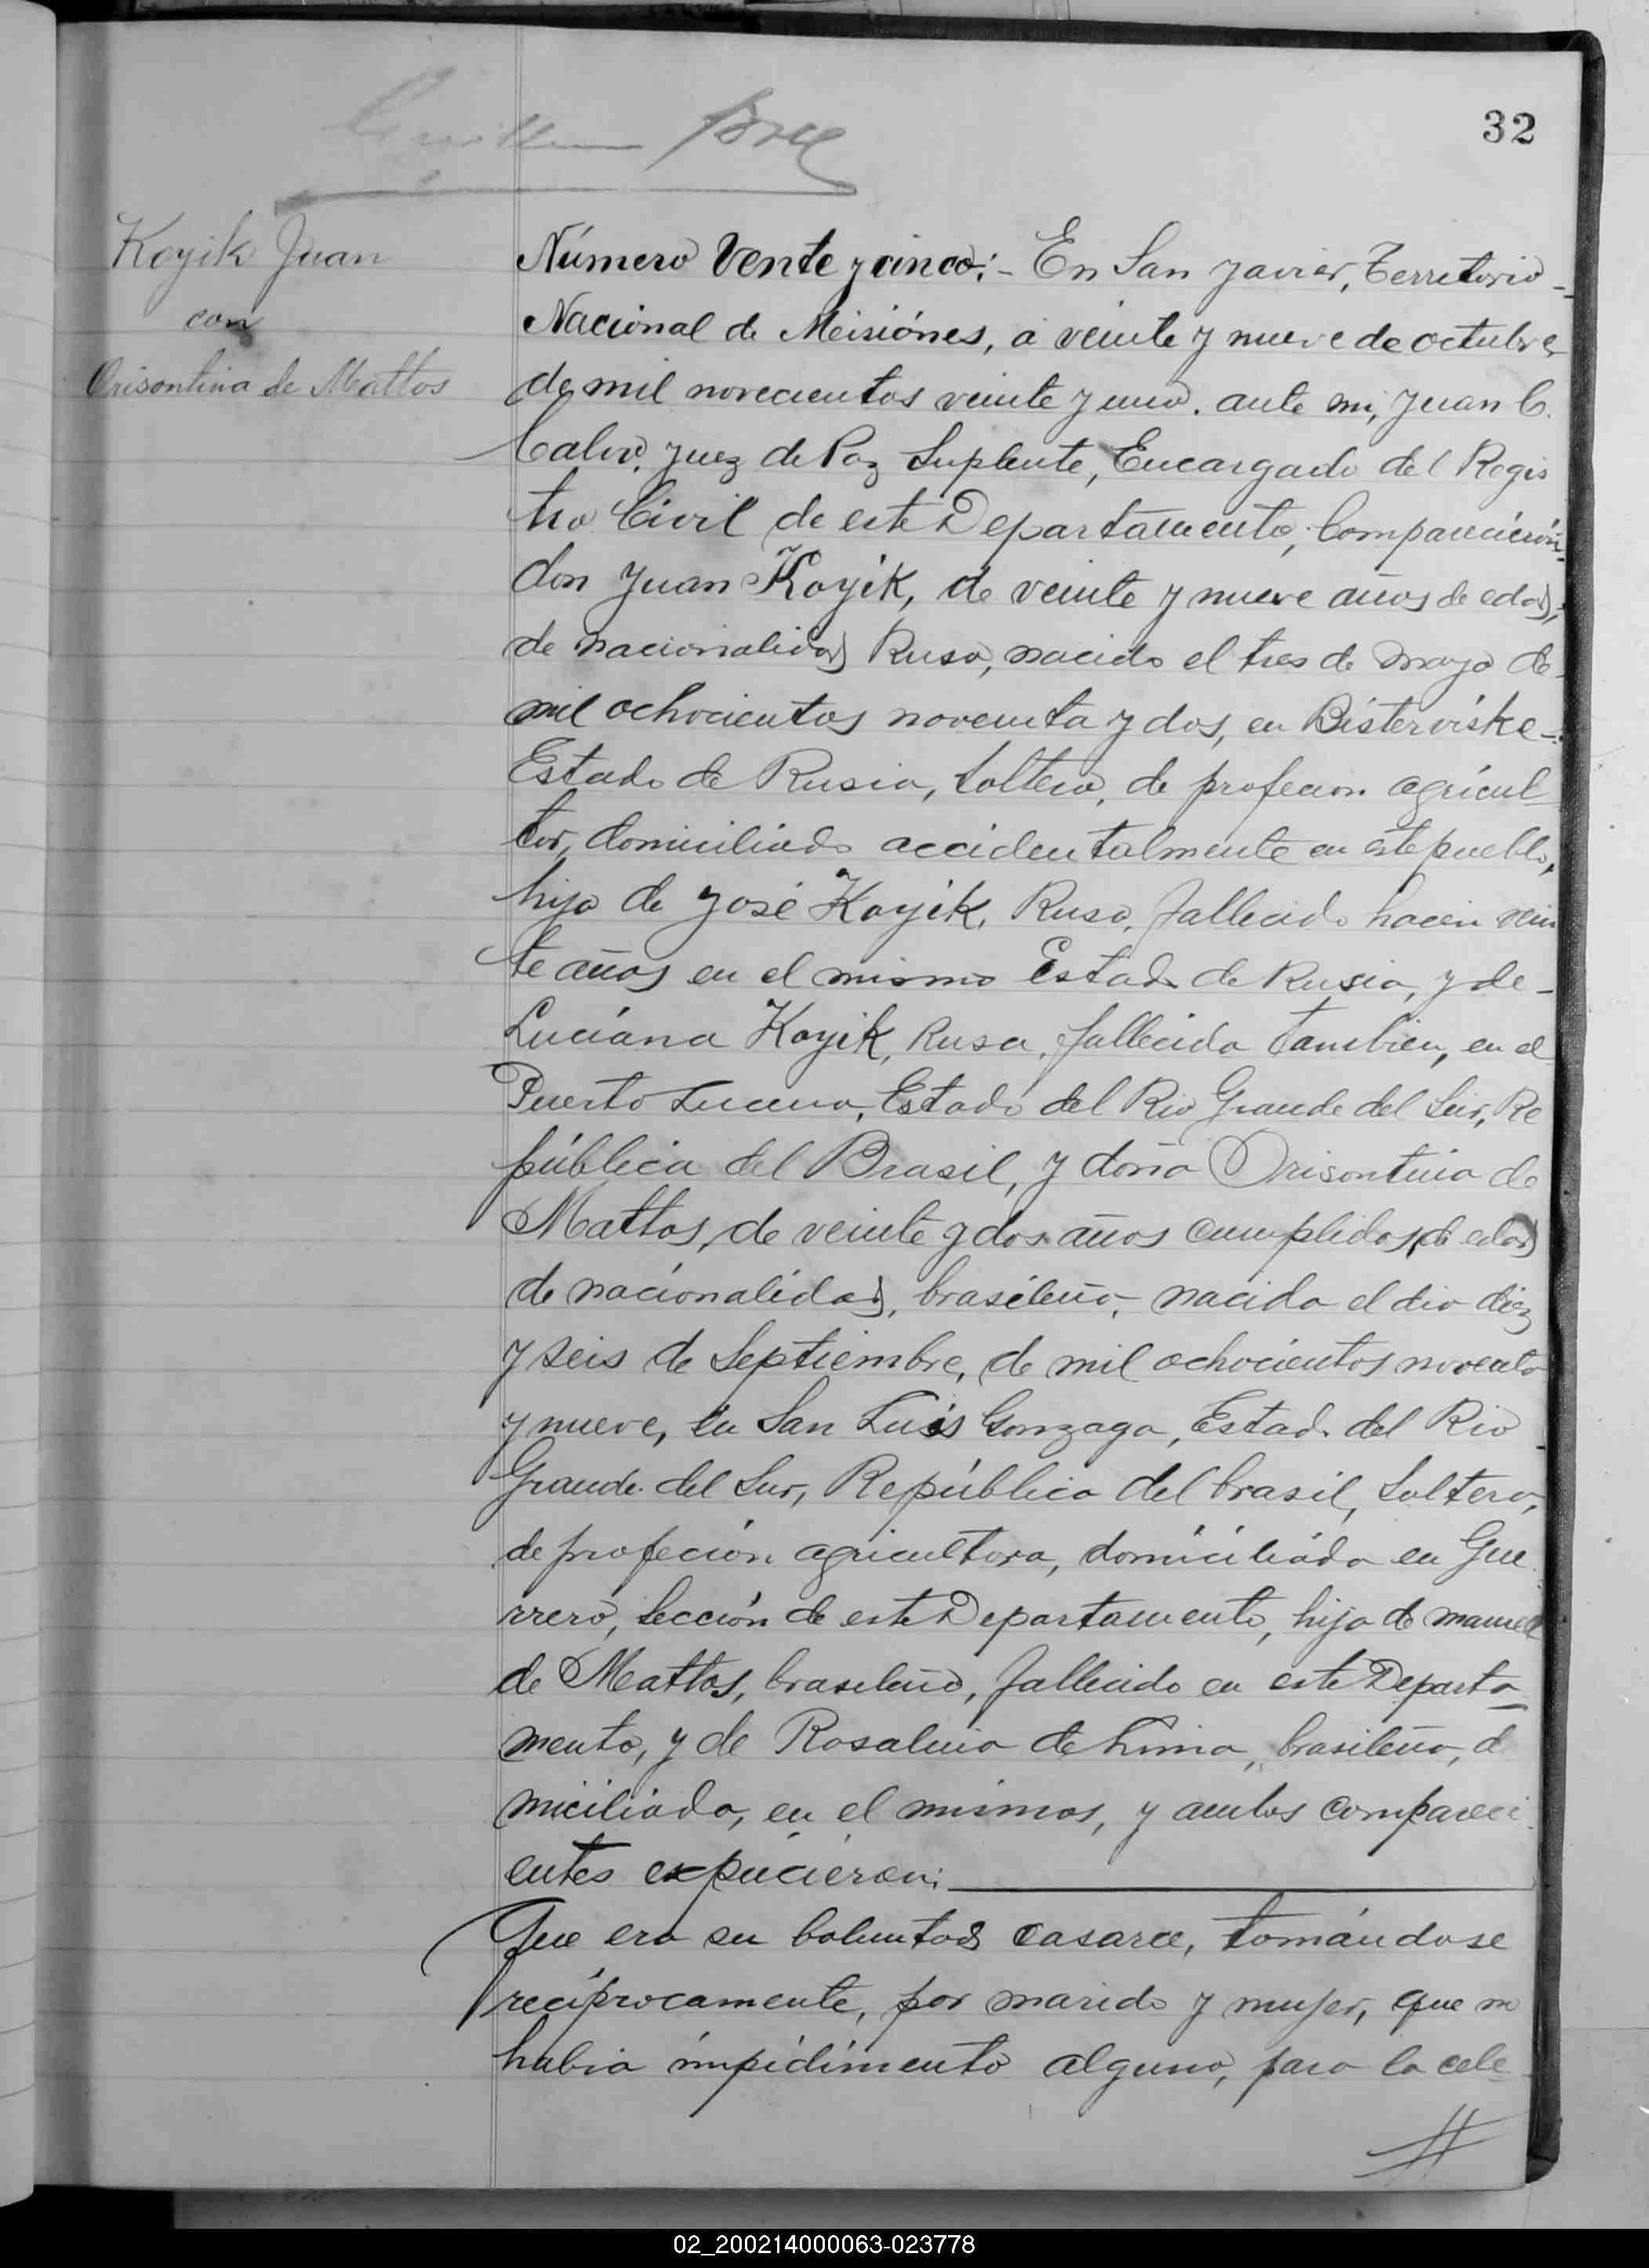 32
Koyik Juan
con
Orisontina de Mattos
Número Vente y cinco:- En San Javier, Territorio-
Nacional de Meisiónes, á veinte y nueve de octubre
de mil novecientos veinte y uno. ante mi, Juan C.
Calvo, Juez de Paz Suplente, Encargado del Regis
tro Civil de este Departamento, Comparecieron
don Juan Koyik, de veinte y nueve años de edad,
de nacionalidad Rusa, nacido el tres de mayo de
mil ochocientos noventa y dos, en Bisterviske-
Estado de Rusia, soltero, de profecion agricul
tor, domiciliado accidentalmente en este pueblo,
hijo de José Koyik, Ruso, fallecido hacen vein
te años en el mismo Estado de Rusia, y de-
Luciana Koyik, Rusa, fallecida tambien, en el
Puerto Lucena, Estado del Rio Grande del Sur, Re
pública del Brasil, y doña Orisontina de
Mattos, de veinte y dos años cumplidos, de edad
de nacionalidad, brasileña, nacida el dia diez
y seis de Septiembre, de mil ochocientos noventa
y nueve, en San Luis Gonzaga, Estado del Rio
Grande del Sur, República del brasil, Soltera,
de profeción agricultora, domiciliada en Gue
rrero, Sección de este Departamento, hija de manuel
de Mattos, brasileño, fallecido en este Departa-
mento, y de Rosalina de Lima, brasileña, do
miciliada, en el mismos, y ambos compareci
entes expucieron;
Que era su boluntad casarce, tomándose
reciprocamente, por marido y mujer, que no
habia impidimento alguno, para la cele-
02_200214000063-023778